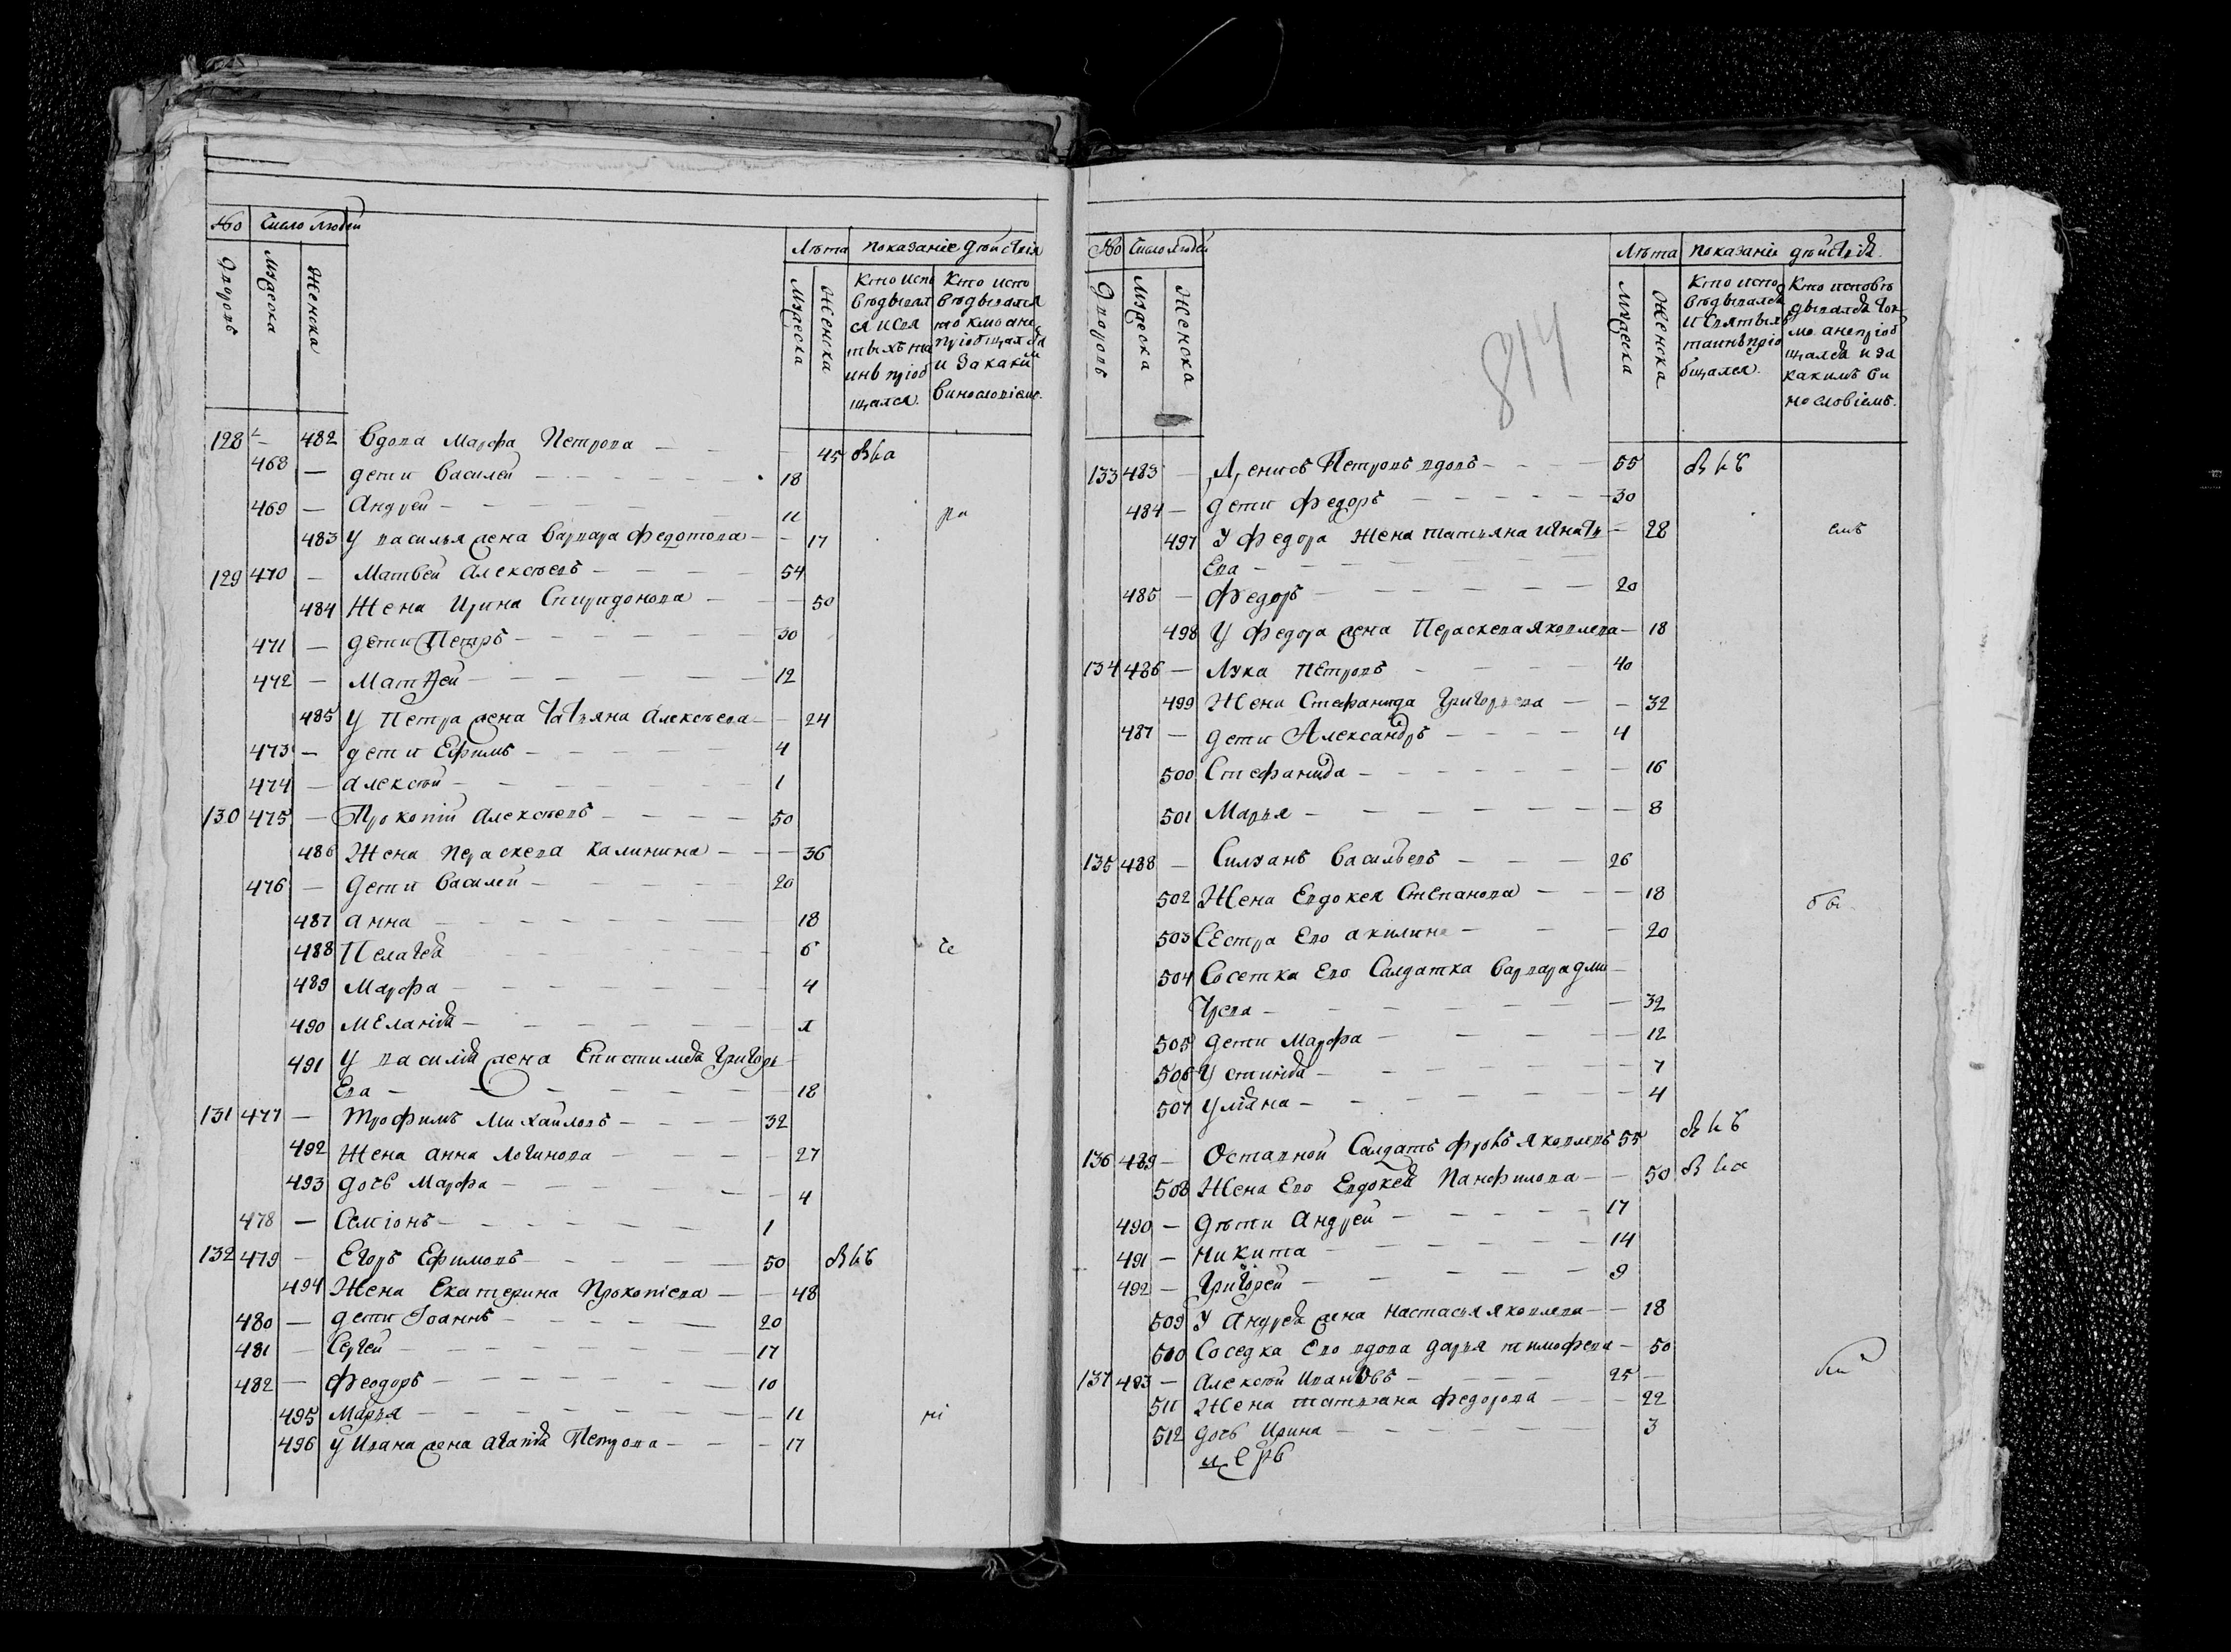 № Число людей
Дворовъ
Мужеска
Женска
Лѣта показаніе дѣйствія
Мужеска
Женска
Кто испо
вѣдывал
ся и свя
тыхъ та
инъ пріоб
щался.
Кто испо
вѣдывался
то кмо а не
пріобщался
и за каки
м
винословіемъ.
128 – 482 вдова Марфа Петрова – – 45
468 – дети Василей – 18
469 – Андрей – 11
483 У василья жена Варвара Федотова – 17
129 470 – Матвей Алексѣевъ – 54
484 Жена Ирина Спиридонова – 50
471 – дети Петръ – 30
472 – Матвей – 12
485 У Петра жена Татьяна Алексѣева – 24
473 – дети Ефимъ – 4
474 – алексѣй – 1
130 475 – Прокопій Алексѣевъ – 50
486 Жена Пераскева Калинина – 36
476 – Дети Василей – 20
487 анна – 18
488 Пелагея – 6
489 Марфа – 4
490 Меланія – 1
491 У василія жена Епистимея Григорь
Ева – 18
131 477 – Трофимъ Михайловъ – 32
492 Жена Анна Логинова – 27
493 дочь Марфа – 4
478 – Семіонъ – 1
132 479 – Егоръ Ефимовъ – 50
494 Жена Екатерина Прокопіева – 48
480 – дети Іоаннъ – 20
481 – Сергей – 17
482 – Феодоръ – 10
495 Марья – 11
496 У Ивана жена Агапія Петрова – 17
№ Число людей
Дворовъ
Мужеска
Женска
814
Лѣта показаніе дѣйствія
Мужеска
Женска
Кто испо
вѣдывался
и святыхъ
таинъ пріо
бщался.
Кто исповѣ
дывался ток
мо а не пріоб
щался и за
какимъ ви
нословіемъ.
133 483 – Денисъ Петровъ вдовъ – 55
484 – дети Федоръ – 30
497 У Федора жена татьяна игнать – 28
Ева –
485 – Федоръ – 20
498 У Федора жена Пераскева яковлева – 18
134 486 – Лука Петровъ – 40
499 Жена Стефанида Григорьева – 32
487 – дети Александръ – 4
500 Стефанида – 16
501 Марья – 8
135 488 – Силуанъ Васильевъ – 26
502 Жена Евдокея Степанова – 18
503 Сестра Ево акилина – 20
504 Соседка Ево Салдатка Варвара дми –
Трева – 32
505 дети Марфа – 12
506 Устинія – 7
507 Уліяна – 4
136 489 – Оставной Салдатъ фролъ яковлевъ 55
508 Жена Ево Евдокея Панфилова – 50
490 – дѣти Андрей – 17
491 – Никита – 14
492 – Григорей – 9
509 У Андрея жена Настасья яковлева – 18
510 Соседка Ево вдова дарья тимофева – 50
137 493 – Алексѣй Ивановъ – 25
511 Жена татьяна Федорова – 22
512 дочь Ирина – 3